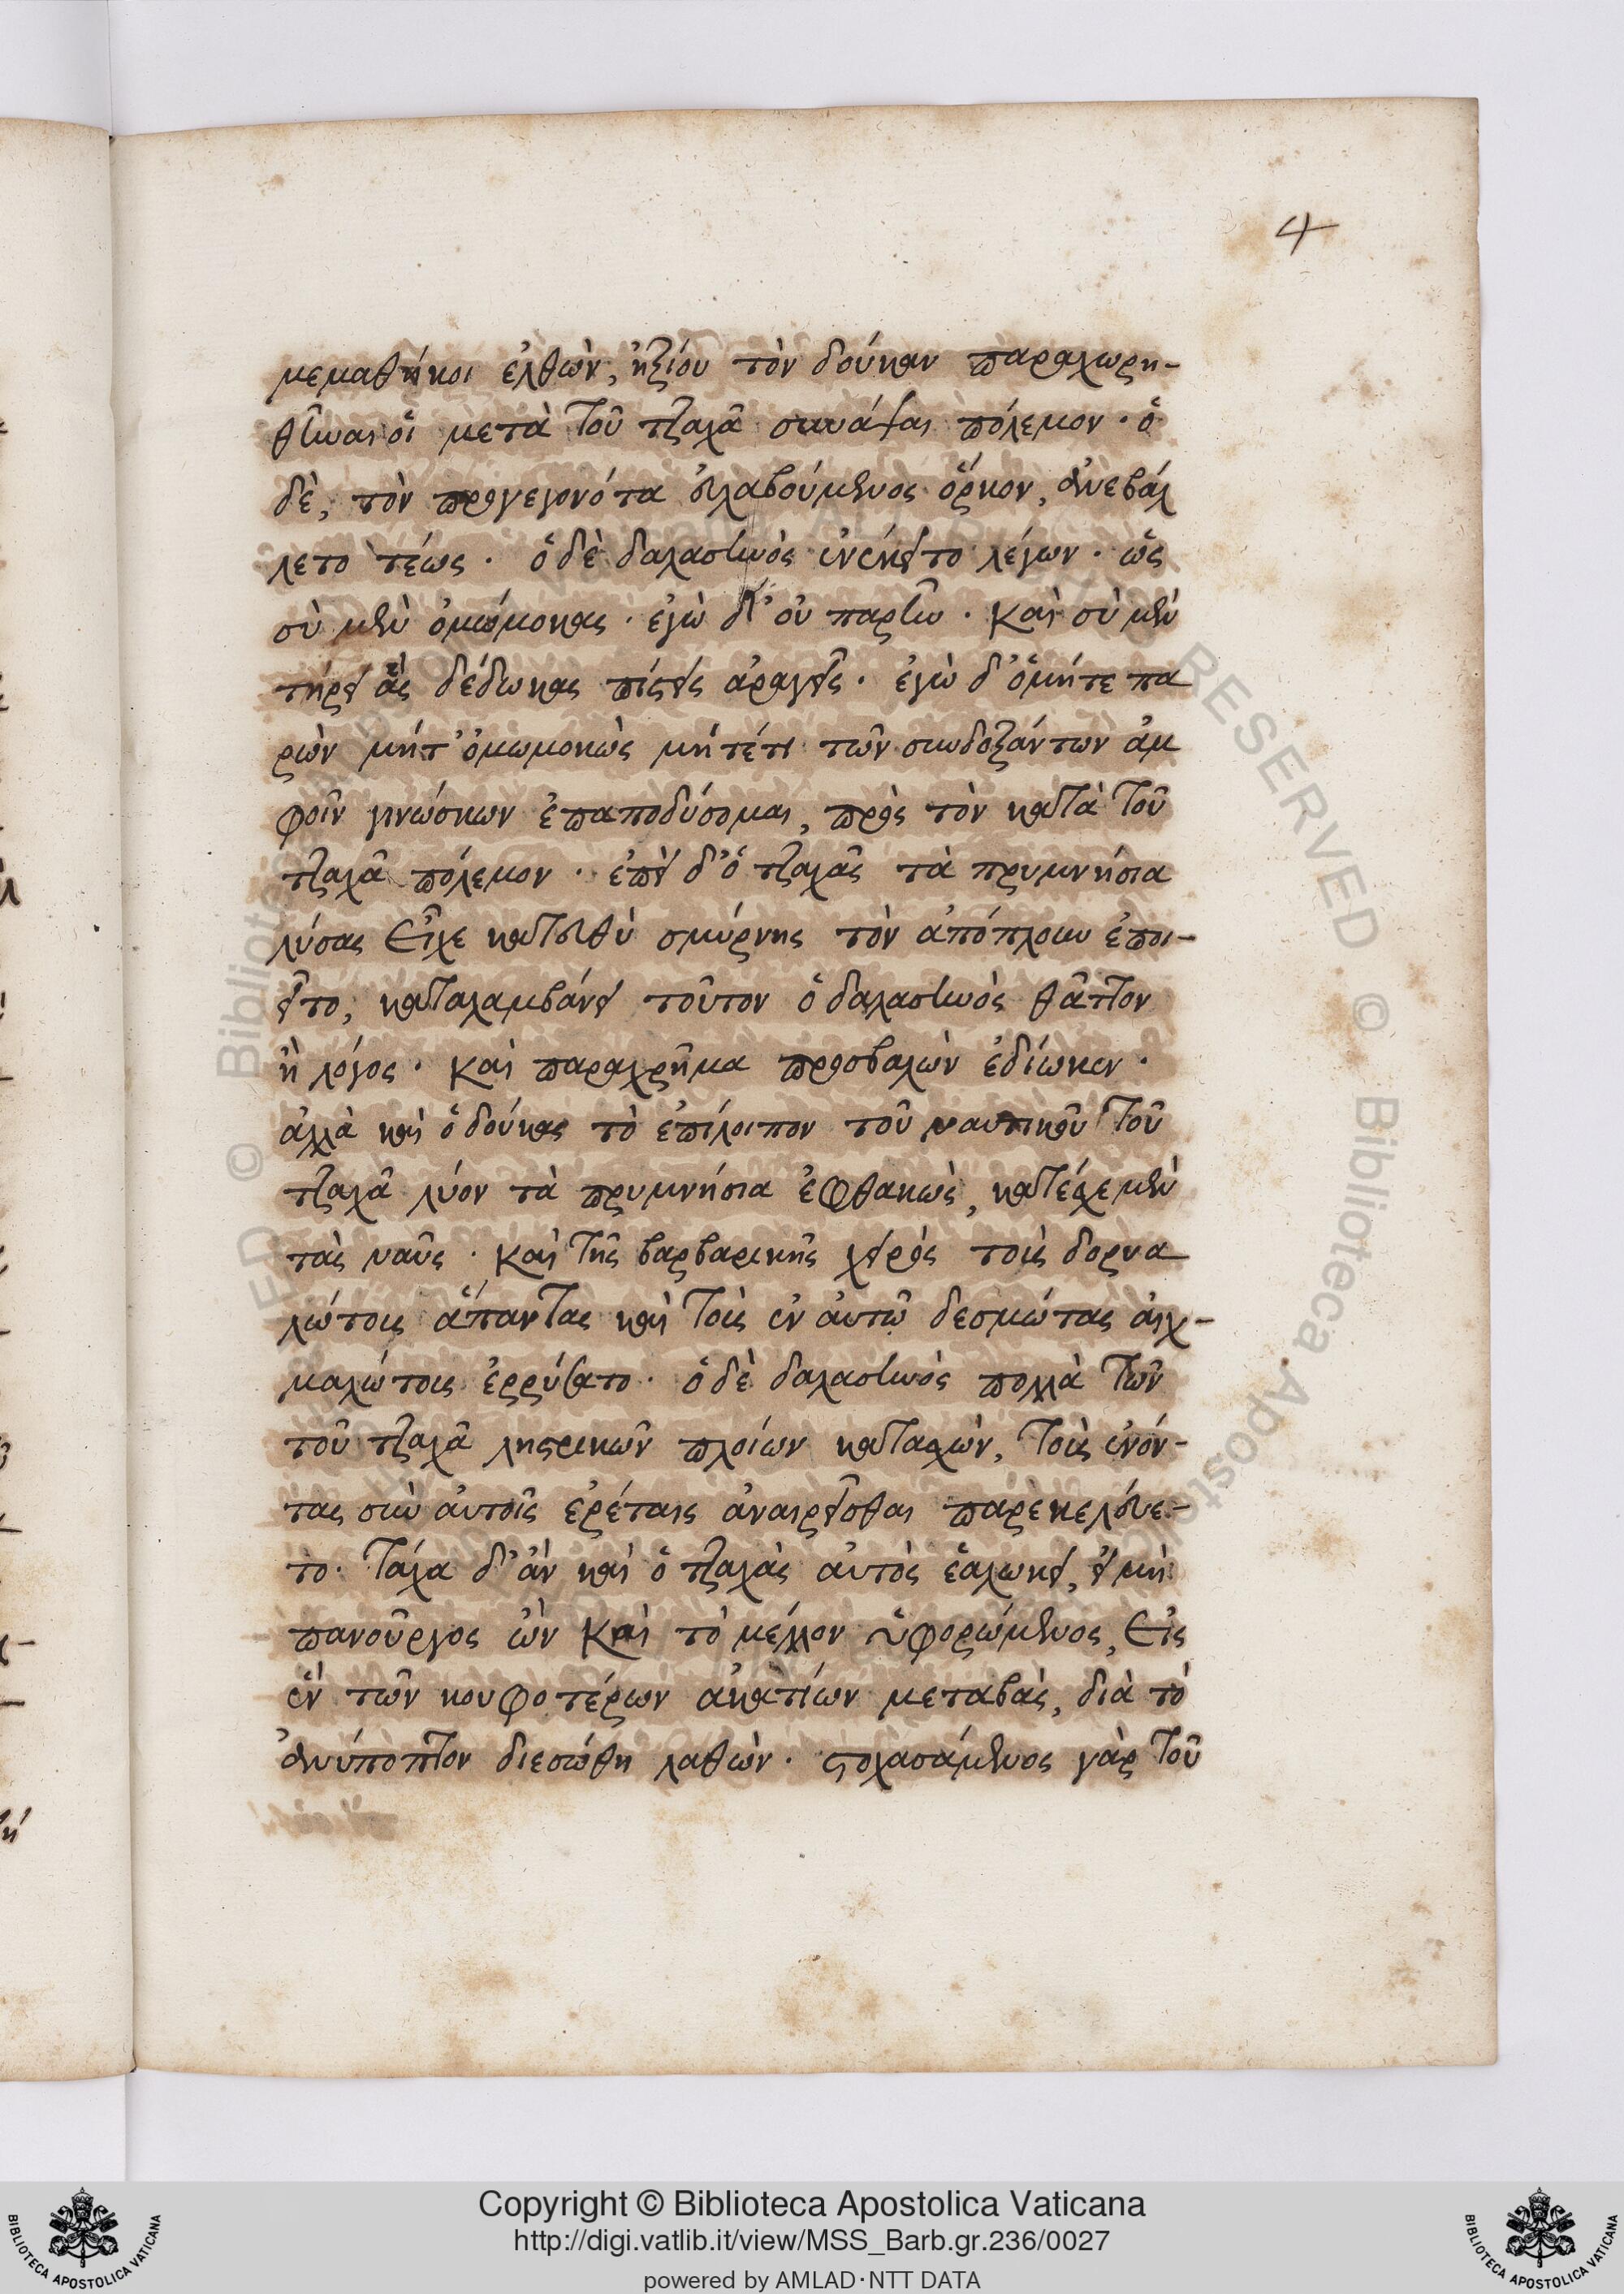 4
μεμαθήκοι ἐλθὼν, ἠξίου τὸν δούκαν παραχωρη-
θῆναι οἱ μετὰ τοῦ τζαχᾶ συνάψαι πόλεμον · ὁ
δὲ, τὸν προγεγονότα εὐλαβούμενος ὅρκον, ἀνεβάλ
λετο τέως · ὁ δὲ δαλασηνὸς ἐνέκειτο λέγων · ὡς
σὺ μὲν ὀμώμοκας · ἐγὼ δ' οὐ παρῆν · Καὶ σὺ μὲν
τήρει ἃς δέδωκας πίστεις ἀραγεῖς · ἐγὼ δ' ὁ μήτε πα
ρὼν μήτ' ὀμωμοκὼς μήτέ τι τῶν συνδοξάντων ἀμ
φοῖν γινώσκων ἐπαποδύσομαι, πρὸς τὸν κατὰ τοῦ
τζαχᾶ πόλεμον · ἐπεὶ δ' ὁ τζαχᾶς τὰ πρυμνήσια
λύσας Εἶχε κατευθὺ σμύρνης τὸν ἀπόπλουν ἐποι-
εῖτο, καταλαμβάνει τοῦτον ὁ δαλασηνὸς θᾶττον
ἢ λόγος · Καὶ παραχρῆμα προσβαλὼν ἐδίωκεν ·
ἀλλὰ καὶ ὁ δούκας τὸ ἐπίλοιπον τοῦ ναυτικοῦ τοῦ
τζαχᾶ λύον τὰ πρυμνήσια ἐφθακὼς, κατέσχε μὲν
τὰς ναῦς · Καὶ τῆς βαρβαρικῆς χειρὸς τοὺς δορυα
λώτους ἅπαντας καὶ τοὺς ἐν αὐτῷ δεσμώτας αἰχ-
μαλώτους ἐρρύσατο · ὁ δὲ δαλασηνὸς πολλὰ τῶν
τοῦ τζαχᾶ ληστρικῶν πλοίων κατασχὼν, τοὺς ἐνόν-
τας σὺν αὐτοῖς ἐρέταις ἀναιρεῖσθαι παρεκελεύε-
το · Τάχα δ' ἂν καὶ ὁ τζαχὰς αὐτὸς ἑαλώκει, εἰ μὴ
πανοῦργος ὢν Καὶ τὸ μέλλον ὑφορώμενος, Εἰς
ἓν τῶν κουφοτέρων ἀκατίων μεταβὰς, διὰ τὸ
ἀνύποπτον διεσώθη λαθὼν · στοχασάμενος γὰρ τοῦ
Copyright © Biblioteca Apostolica Vaticana
http://digi.vatlib.it/view/MSS_Barb.gr.236/0027
powered by AMLAD·NTT DATA
BIBLIOTECA APOSTOLICA VATICANA
BIBLIOTECA APOSTOLICA VATICANA